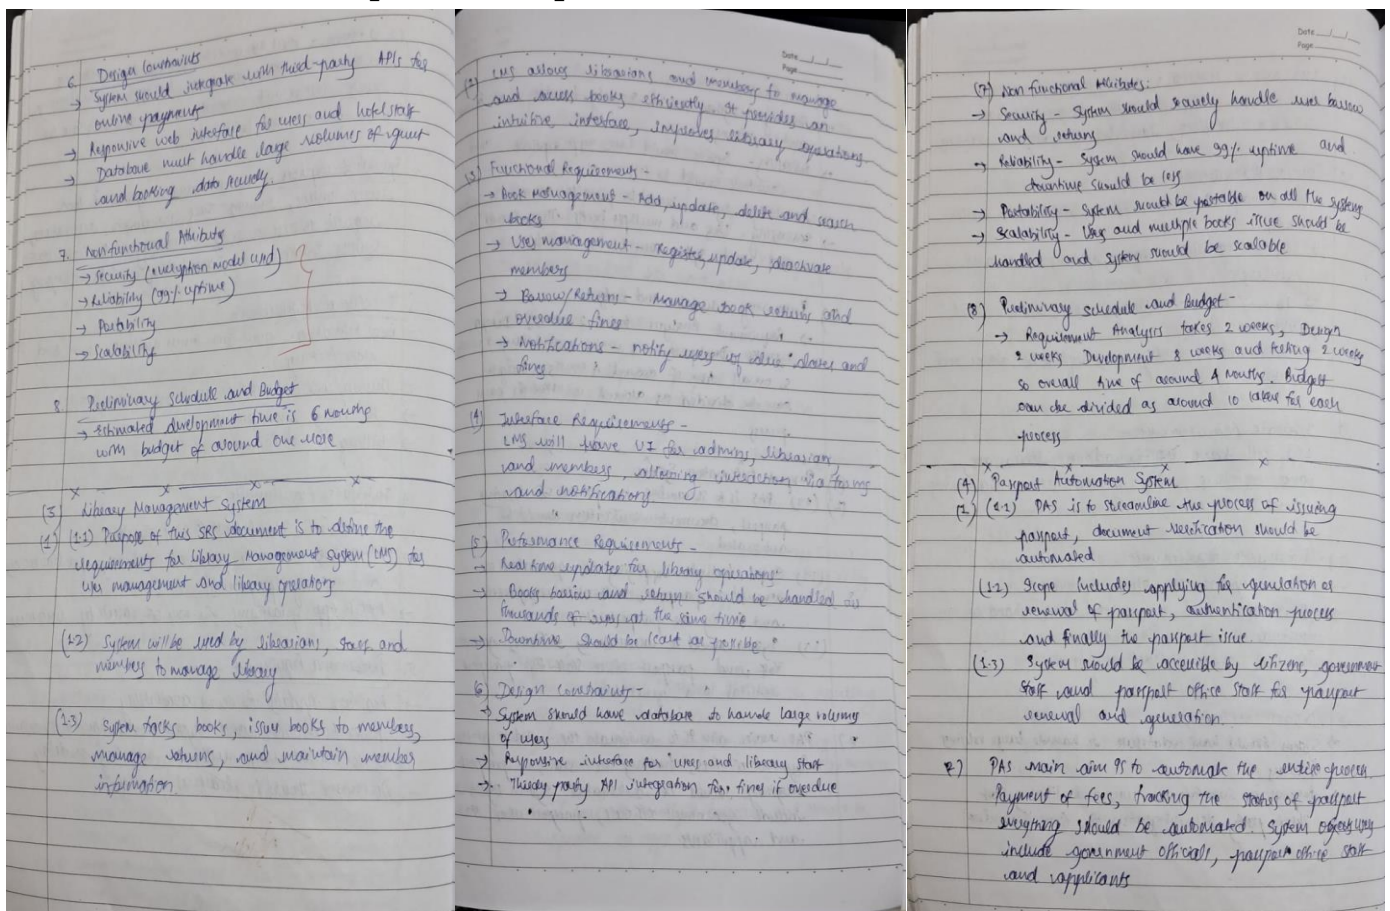 6. Design Constraints
→ System should integrate with third-party APIs for
online payments
→ Responsive web interface for users and hotel staff
→ Database must handle large volumes of guest
and booking data
7. Non functional Attributes
→ Security (encryption model used)
→ Reliability (99% uptime)
→ Portability
→ Scalability
8. Preliminary Schedule and Budget
→ Estimated development time is 6 months
with budget of around one
(3) Library Management System
(1) (1.1) Purpose of this SRS document is to define the
requirements for Library Management System (LMS) for
user management and library operations
(1.2) System will be used by librarians, staff and
members to manage library
(1.3) System tracks books, issue books to members,
manage returns, and maintain member
information
Date
Page
(2) LMS allows librarians and members to manage
and access books efficiently. It provides an
intuitive interface, improves library operations.
(3) Functional Requirements -
→ Book Management - Add, update, delete and search
books
→ User management - Register, update, deactivate
members
→ Borrow/Returns - Manage book returns and
overdue fines
→ Notifications - notify users of due dates and
fines
(4) Interface Requirements -
LMS will have UI for admins, librarian,
and members, allowing interaction via forms
and notifications
(5) Performance Requirements -
→ Real time updates for library operations
→ Books borrow and return should be handled
thousands of users at the same time
→ Downtime should be least as possible
(6) Design Constraints -
→ System should have database to handle large volumes
of users
→ Responsive interface for users and library staff
→ party API integration for fines if overdue
Date
Page
(7) Non functional Attributes:
→ Security - System should handle user borrow
and returns
→ Reliability - System should have 99% uptime and
downtime should be less
→ Portability - System should be portable on all the systems
→ Scalability - User and multiple books issue should be
handled and system should be scalable
(8) Preliminary schedule and Budget -
→ Requirement Analysis takes 2 weeks, Design
2 weeks Development 8 weeks and testing 2 weeks
so overall time of around 4 months. Budget
can be divided as around 10 lakhs for each
process
(4) Passport Automation System
(1) (1.1) PAS is to streamline the process of issuing
passport, document verification should be
automated
(1.2) Scope includes applying for generation or
renewal of passport, authentication process
and finally the passport issue.
(1.3) System should be accessible by citizens, government
staff and passport office staff for passport
renewal and generation.
2.) PAS main aim is to automate the entire process
Payment of fees, tracking the status of passport
everything should be automated. System
include government officials, passport office staff
and applicants